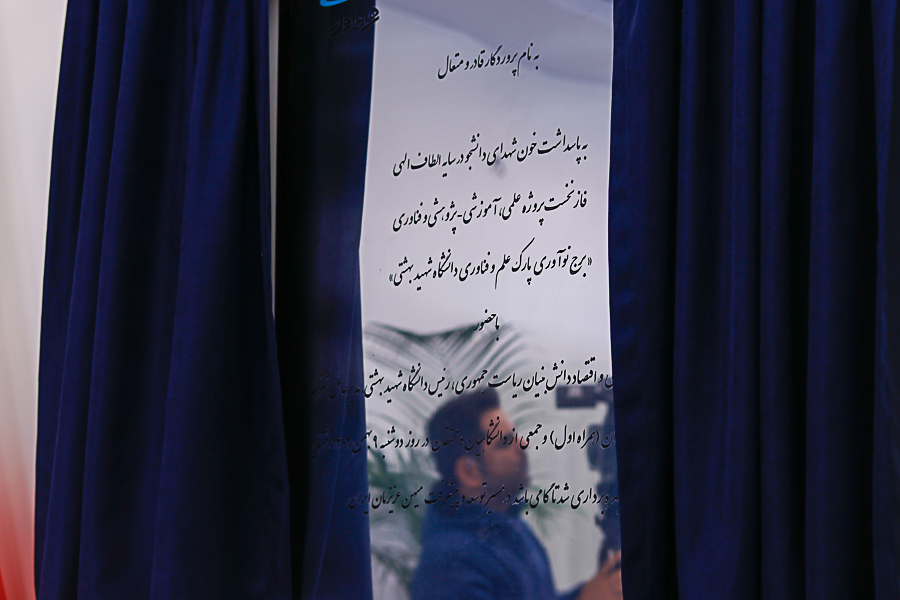 به نام پروردگار قادر و متعال
به پاسداشت خون شهدای دانشجو در سایه الطاف الهی
فاز نخست پروژه علمی، آموزشی-پژوهشی و فناوری
«برج نوآوری پارک علم و فناوری دانشگاه شهید بهشتی»
با حضور
و اقتصاد دانش بنیان ریاست جمهوری، رئیس دانشگاه شهید بهشتی
(همراه اول) و جمعی از دانشگاهیان در روز دوشنبه ۹ بهمن
برداری شد تا گامی باشد در مسیر توسعه و پیشرفت میهن عزیزمان ایران